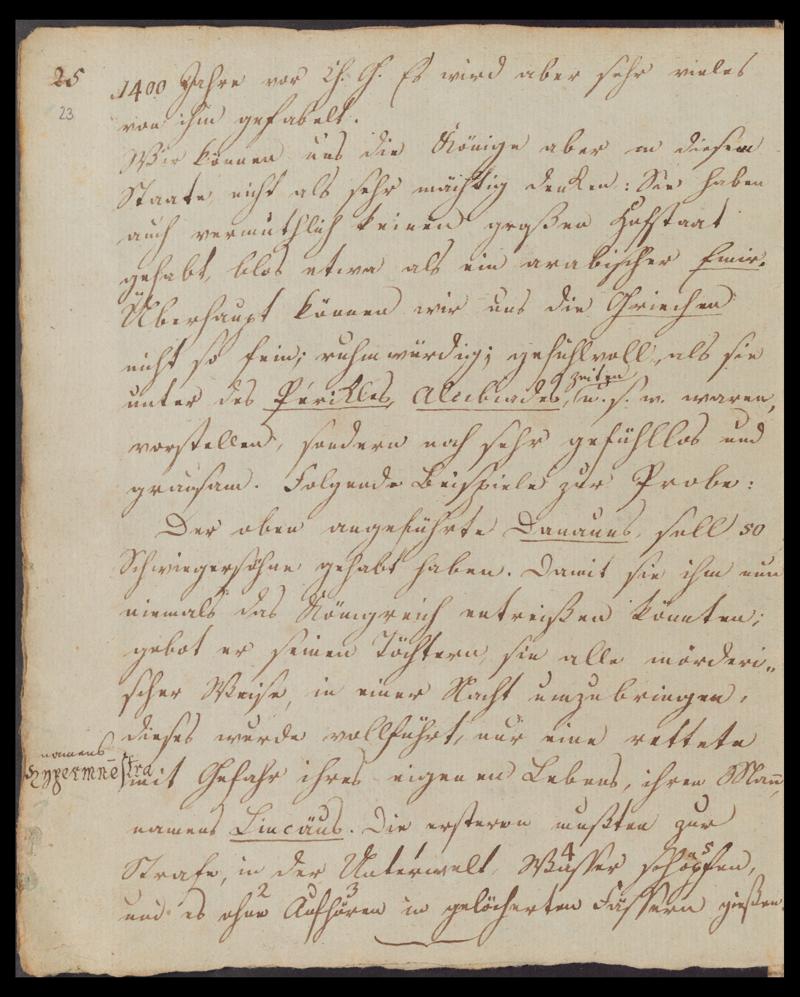 25
23
1400 Jahre vor Ch. G. Es wird aber sehr vieles
von ihm gefabelt.
Wir können uns die Könige aber in diesem
Staate nicht als sehr mächtig denken: Sie haben
auch vermuthlich keinen großen Hofstaat
gehabt, blos etwa als ein arabischer Emir.
Überhaupt können wir uns die Griechen
nicht so fein; ruhmwürdig; gefühlvoll, als sie
zeiten
unter des Perikles, Alcibiades, u. s. w. waren,
vorstellen, sondern noch sehr gefühllos und
grausam. Folgende Beispiele zur Probe:
Der oben angeführte Danauns, soll 50
Schwiegersöhne gehabt haben. Damit sie ihm nun
niemals das Königreich entreißen könnten;
gebot er seinen Töchtern, sie alle mörderi„
scher Weise, in einer Nacht umzubringen,
dieses wurde vollführt, nur eine rettete
namens
Hypermnestra
mit Gefahr ihres eigenen Lebens, ihren Mañ,
namens Lincäus. Die ersteren mußten zur
Strafe, in der Unterwelt, Wasser schöpfen,
und es ohne Aufhören in gelöcherten Fässern gießen.
1 4 5
2 3